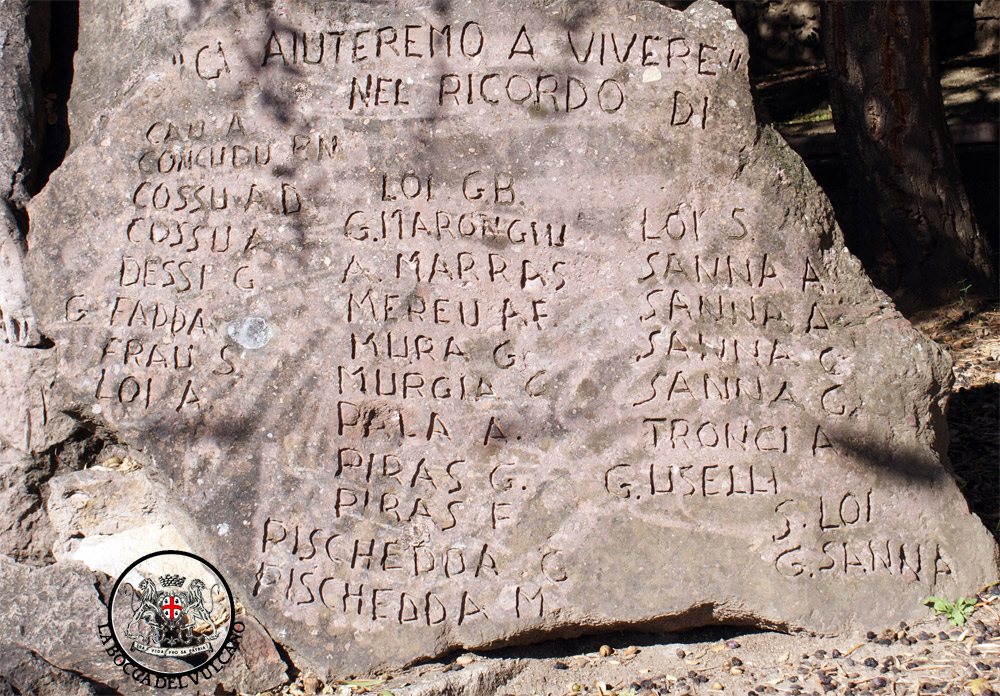 "CI AIUTEREMO A VIVERE"
NEL RICORDO DI
CAU A
CONCUDU P.N
COSSU A.D
COSSU A
DESSI G
G FADDA
FRAU S.
LOI A
LOI G.B.
G.MARONGIU
A. MARRAS
MEREU A F.
MURA G.
MURGIA G
PALA A.
PIRAS G.
PIRAS F
PISCHEDDA G
PISCHEDDA M.
LOI S
SANNA A.
SANNA A
SANNA G
SANNA G
TRONCI A
G.USELLI
S. LOI
G.SANNA
LA BOCCA DEL VULCANO